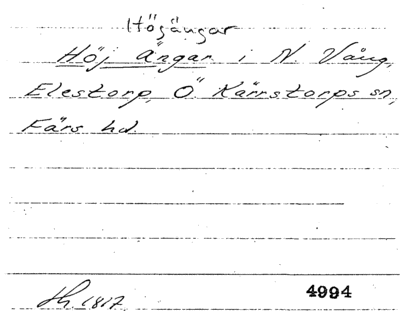 Högängar
Höj Ängar i N. Vång,
Elestorp, Ö Kärrstorps sn,
Färs hd.
Jh 1817. 4994